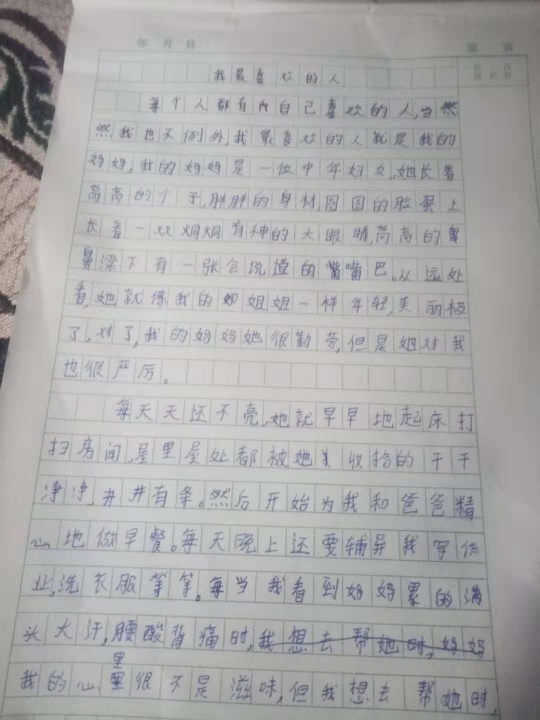 年 月 日
我最喜欢的人
每个人都有自己喜欢的人,当然
然我也不例外,我最喜欢的人就是我的
妈妈,我的妈妈是一位中年妇女,她长着
高高的个子,胖胖的身材,圆圆的脸蛋上
长着一双炯炯有神的大眼睛,高高的鼻
鼻梁下有一张会说道的嘴嘴巴。从远处
看,她就像我的姐姐一样年轻,美丽极
了,对了,我的妈妈她很勤劳,但是她对我
也很严厉。
每天天还不亮,她就早早地起床打
扫房间,屋里屋处都被她收拾的干干
净净,井井有条。然后开始为我和爸爸精
心地做早餐。每天晚上还要辅导我写作
业,洗衣服等等。每当我看到妈妈累的满
头大汗,腰酸背痛时,我想去帮她时,妈妈
我的心里很不是滋味,但我想去帮她时,